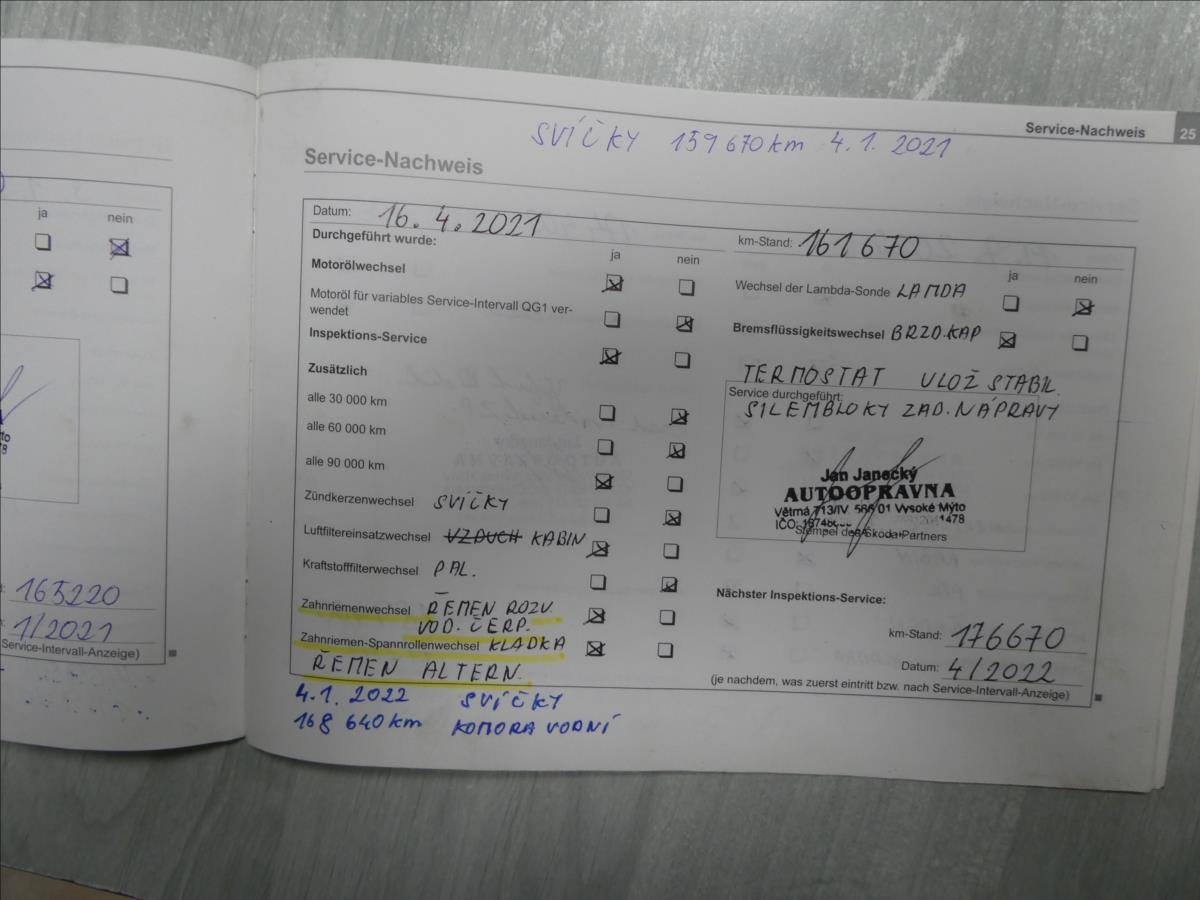 Service-Nachweis 25
SVÍČKY 159670km 4.1.2021
Service-Nachweis
ja nein
165220
1/2021
Service-Intervall-Anzeige)
Datum: 16.4.2021
km-Stand: 161670
Durchgeführt wurde: ja nein
Motorölwechsel
Motoröl für variables Service-Intervall QG1 ver-
wendet
Inspektions-Service
Zusätzlich
alle 30 000 km
alle 60 000 km
alle 90 000 km
Zündkerzenwechsel SVÍČKY
Luftfiltereinsatzwechsel VZDUCH KABIN
Kraftstofffilterwechsel PAL.
Zahnriemenwechsel ŘEMEN ROZV.
VOD. ČERP.
Zahnriemen-Spannrollenwechsel KLADKA
ŘEMEN ALTERN.
ja nein
Wechsel der Lambda-Sonde LAMDA
Bremsflüssigkeitswechsel BRZD.KAP
TERMOSTAT VLOŽ STABIL.
Service durchgeführt:
SILEMBLOKY ZAD. NÁPRAVY
Jan Janecký
AUTOOPRAVNA
Větrná 713/IV, 566 01 Vysoké Mýto
IČO: 1478
Stempel des Škoda-Partners
Nächster Inspektions-Service:
km-Stand: 176670
Datum: 4/2022
(je nachdem, was zuerst eintritt bzw. nach Service-Intervall-Anzeige)
4.1.2022 SVÍČKY
168 640km KOMORA VODNÍ